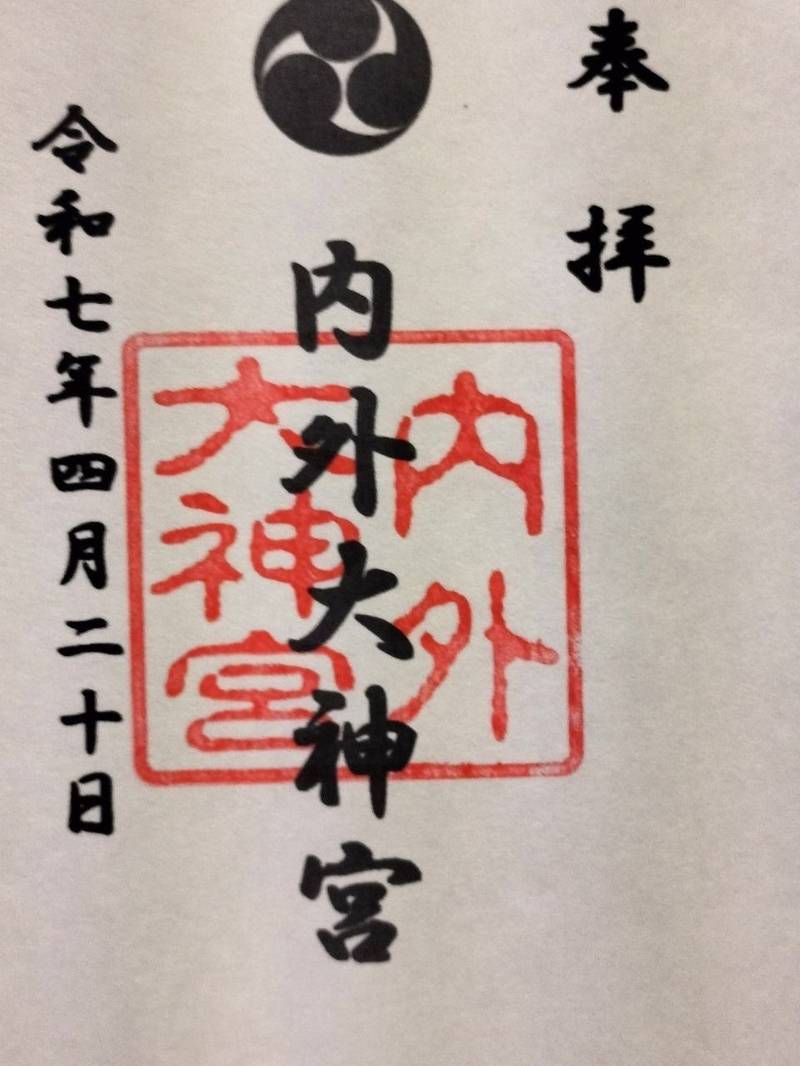 奉拝
内外大神宮
内外
大神宮
令和七年四月二十日